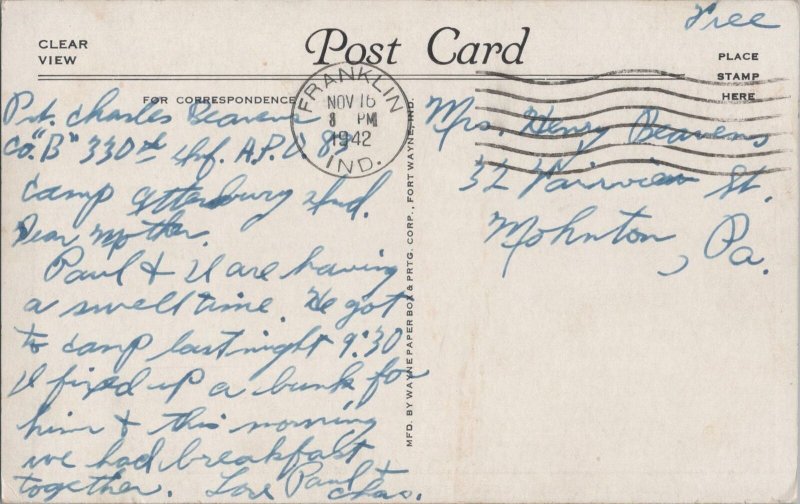 Free
CLEAR
VIEW
Post Card
PLACE
STAMP
HERE
FOR CORRESPONDENCE
FRANKLIN
NOV 16
8 PM
1942
IND.
Pvt. Charles Beavens
Co. "B" 330th Inf. A.P.O. 83
Camp Atterbury Ind.
Dear Mother.
Paul & I are having
a swell time. He got
to camp last night 9:30
I fixed up a bunk for
him & this morning
we had breakfast
together. Love Paul &
Chas.
MFD. BY WAYNE PAPER BOX & PRTG. CORP., FORT WAYNE, IND.
Mrs. Henry Beavens
32 Fairview St.
Mohnton, Pa.